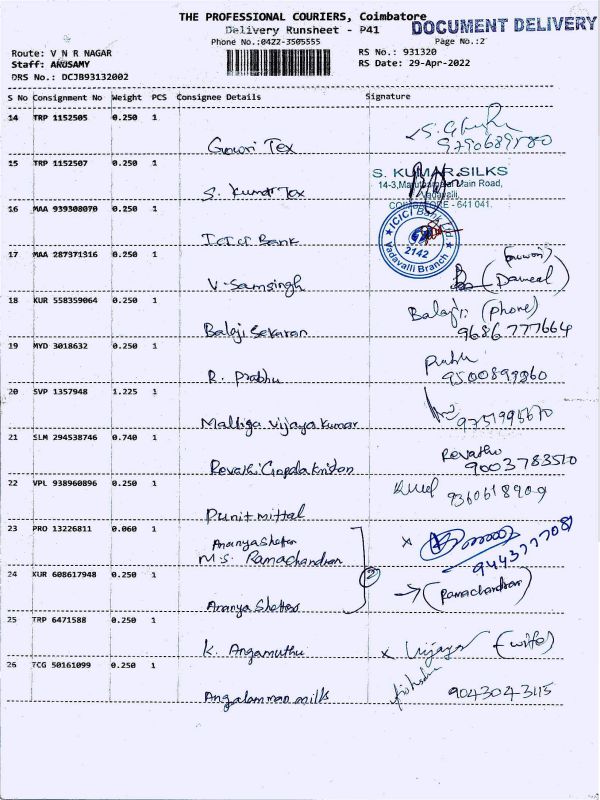 THE PROFESSIONAL COURIERS, Coimbatore
DOCUMENT DELIVERY
Delivery Runsheet - P41
Phone No.:0422-3505555
Page No.:2
Route: V N R NAGAR
Staff: ARUSAMY
DRS No.: DCJB93132002
RS No.: 931320
RS Date: 29-Apr-2022
S No Consignment No Weight PCS Consignee Details Signature
14 TRP 1152505 0.250 1
Gowri Tex
9790689580
15 TRP 1152507 0.250 1
S. KUMAR SILKS
14-3,Maruthamalai Main Road,
Vadavalli,
COIMBATORE - 641 041.
S. Kumar Tex
16 MAA 939308070 0.250 1
ICICI Bank
ICICI Bank Ltd.
2142
Vadavalli Branch
17 MAA 287371316 0.250 1
V. Samsingh
18 KUR 558359064 0.250 1
Balaji Sekaran
Balaji (phone)
9686777664
19 MYD 3018632 0.250 1
R. Prabhu
Prabhu
9500899860
20 SVP 1357948 1.225 1
Malliga Vijaya Kumar
9751995670
21 SLM 294538746 0.740 1
Revathi Gopalakristan
Revathi
9003783510
22 VPL 938960896 0.250 1
Punit mittal
9360618909
23 PRO 13226811 0.060 1
M.S. Ramachandran
x
2
24 KUR 608617948 0.250 1
(Ramachandran)
Ananya Shettar
25 TRP 6471588 0.250 1
K. Angamuthu
x Vijaya (wife)
26 TCG 50161099 0.250 1
Angalamman mills
9043043115